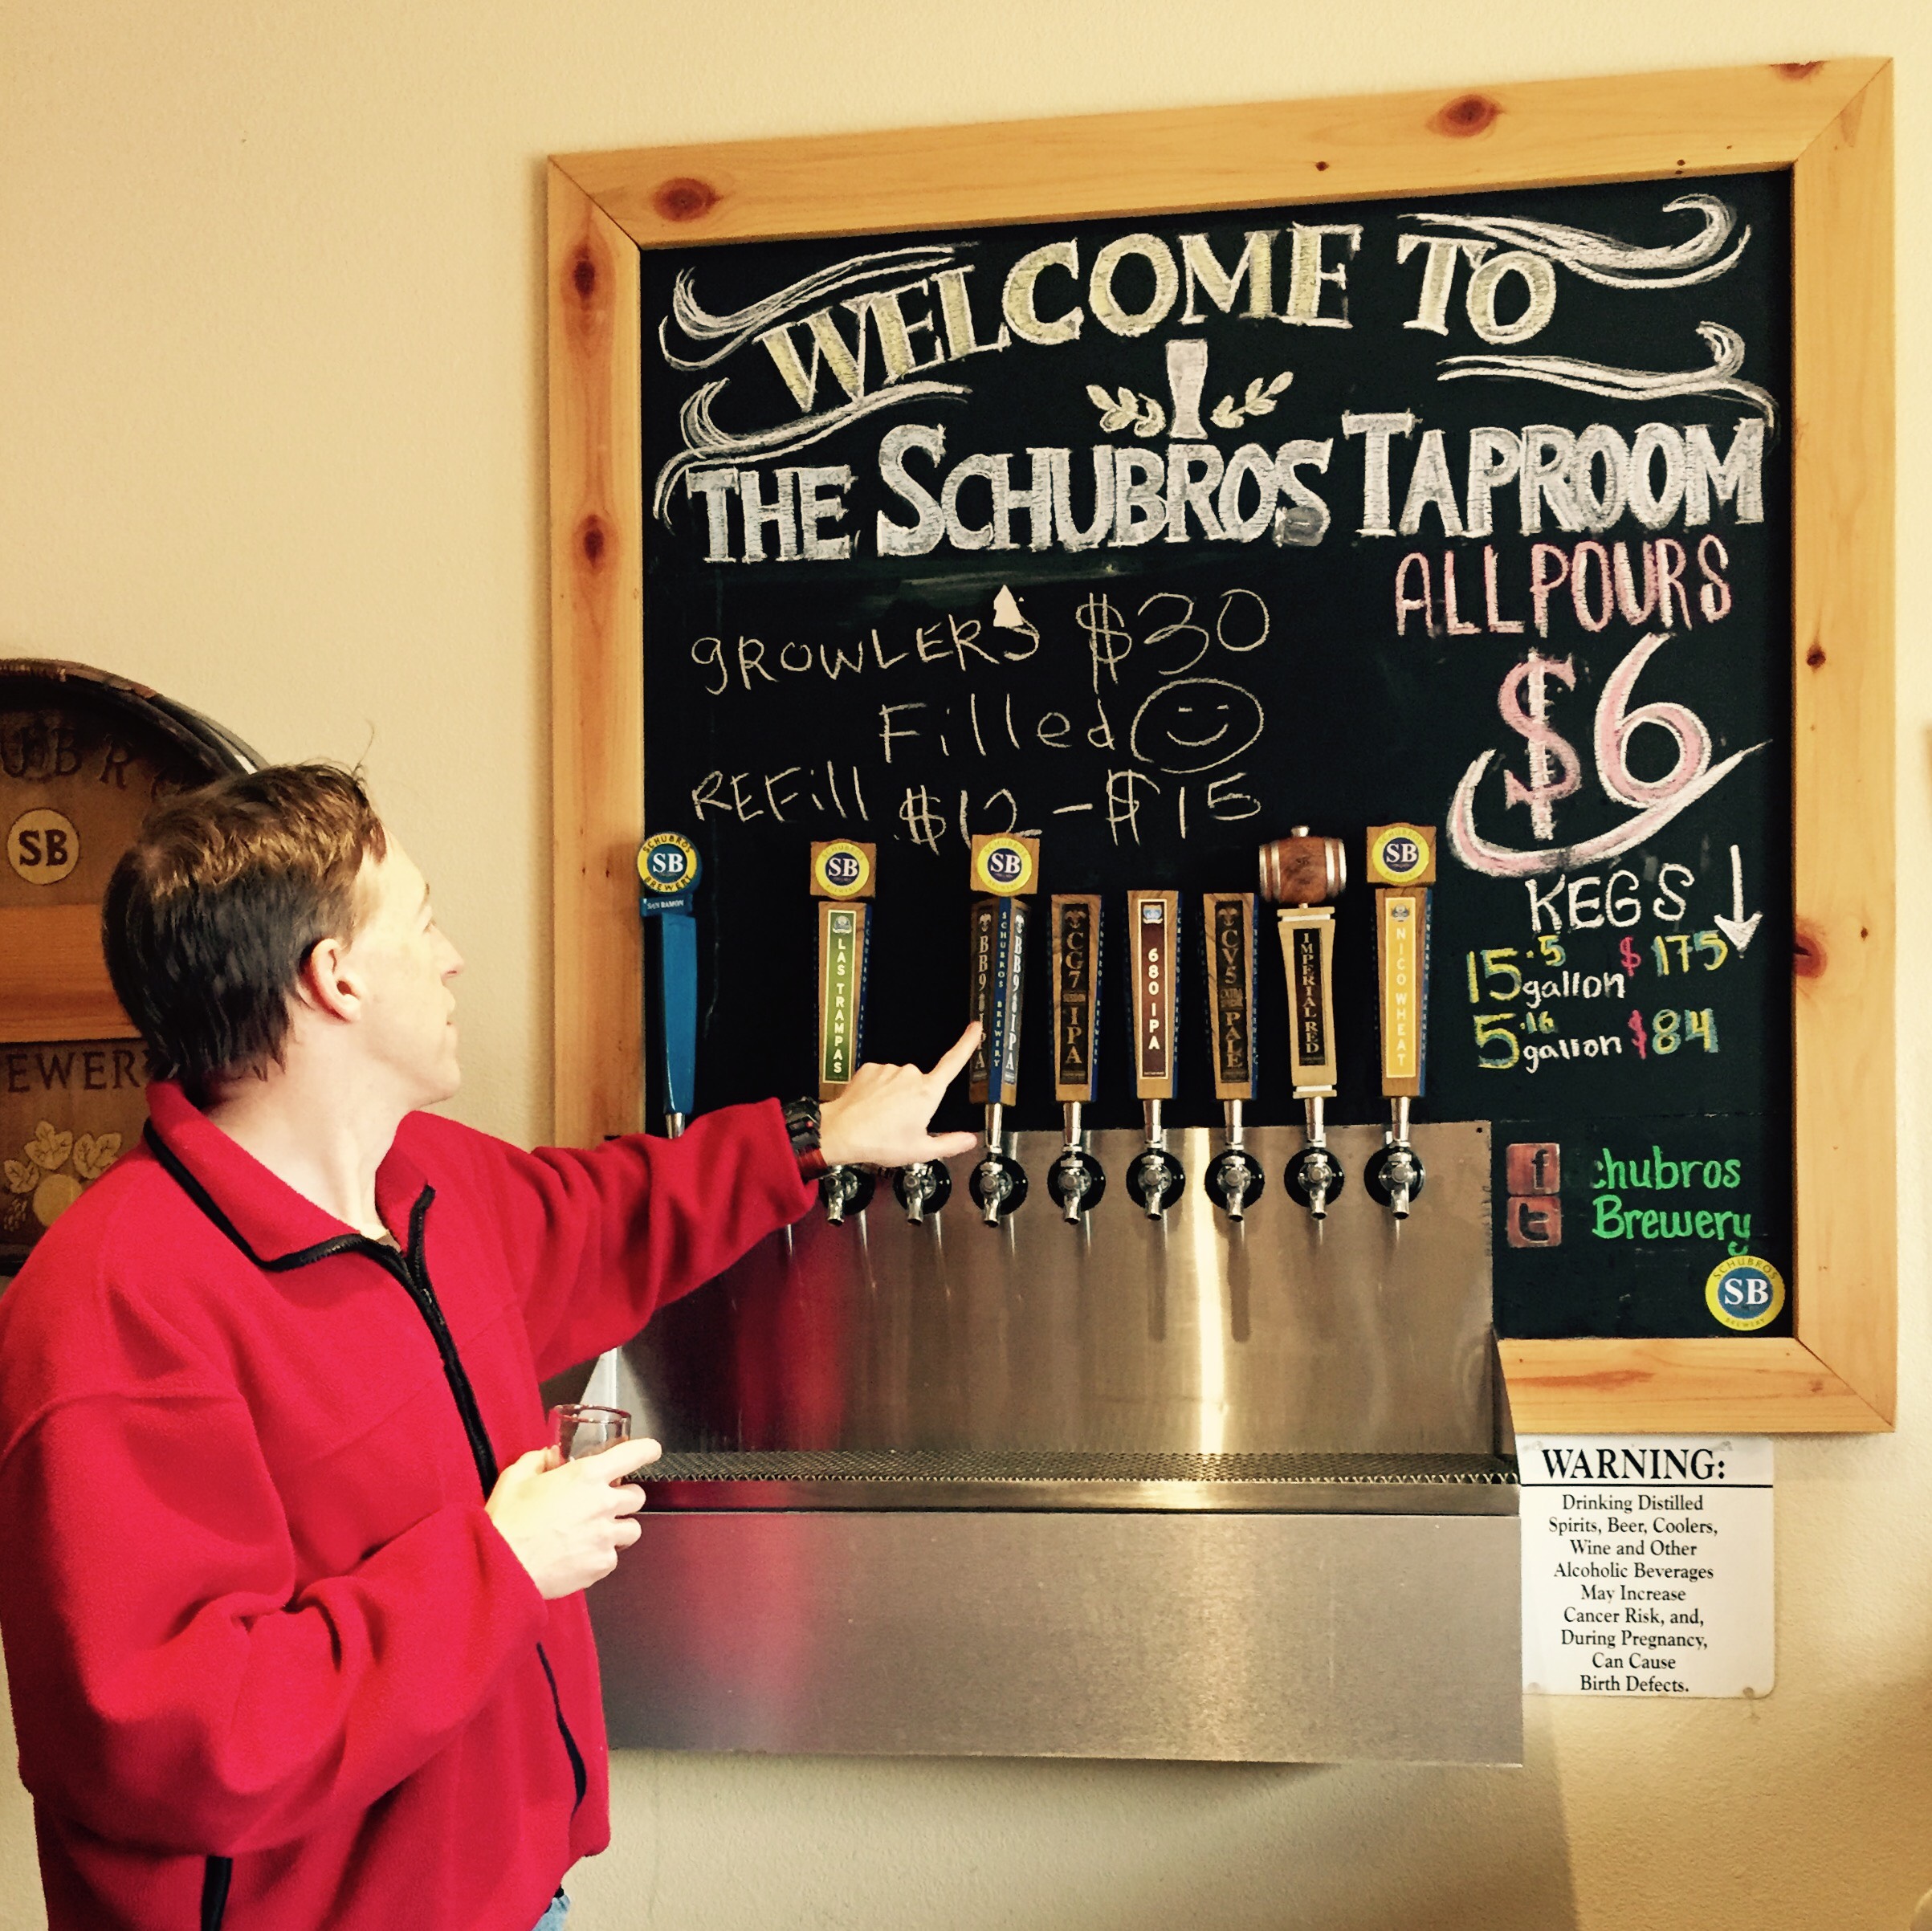 WELCOME TO
THE SCHUBROS TAPROOM
ALL POURS
$6
gROWLERS $30
Filled
REFill $12 - $15
KEGS
15.5 gallon $175
5.16 gallon $84
f
t
chubros
Brewery
SCHUBROS
SB
BREWERY
SCHUBROS
SB
BREWERY
SAN RAMON
SCHUBROS
SB
LAS TRAMPAS
SCHUBROS
SB
SCHUBROS BREWERY
BB9 IPA
CG7
IPA
680 IPA
CV5
PALE
IMPERIAL RED
SCHUBROS
SB
NICO WHEAT
UBR
SB
EWER
WARNING:
Drinking Distilled
Spirits, Beer, Coolers,
Wine and Other
Alcoholic Beverages
May Increase
Cancer Risk, and,
During Pregnancy,
Can Cause
Birth Defects.